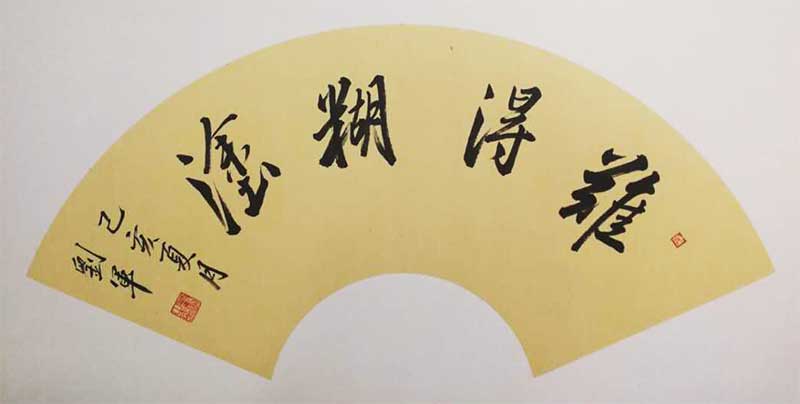 難得糊塗
己亥夏月
劉軍